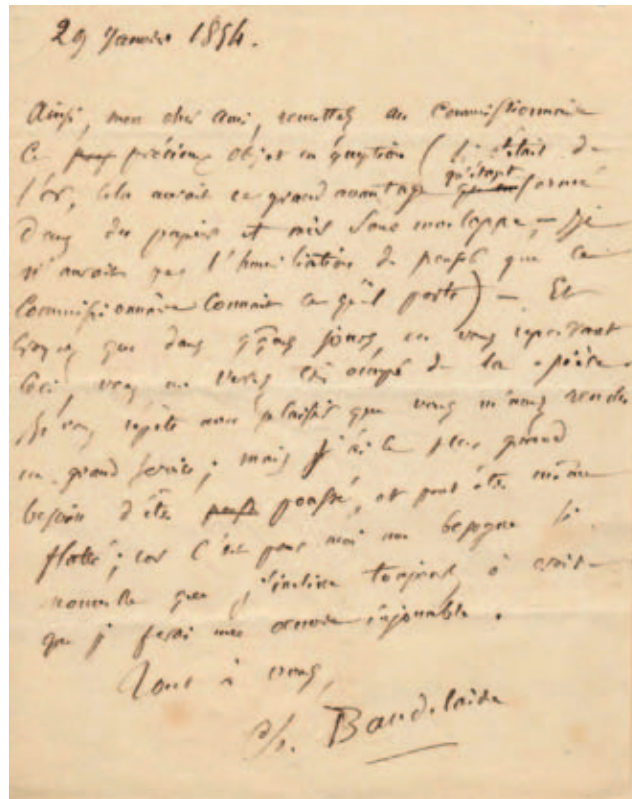 29 Janvier 1854.
Ainsi, mon cher ami, remettez au commissionnaire
ce précieux objet en question (si c'était de
l'or, cela aurait ce grand avantage qu'étant fermé
dans du papier et mis sous enveloppe, — je
n'aurais pas l'humiliation de penser que le
commissionnaire connait ce qu'il porte) — Et
croyez que dans qques jours, en vous reportant
ceci, vous me verrez très occupé de la pièce.
Je vous répète avec plaisir que vous m'avez rendu
un grand service; mais j'ai le plus grand
besoin d'être poussé, et peut être même
flatté; car c'est pour moi une besogne si
nouvelle que j'incline toujours à croire
que je ferai une œuvre injouable.
Tout à vous,
Ch. Baudelaire